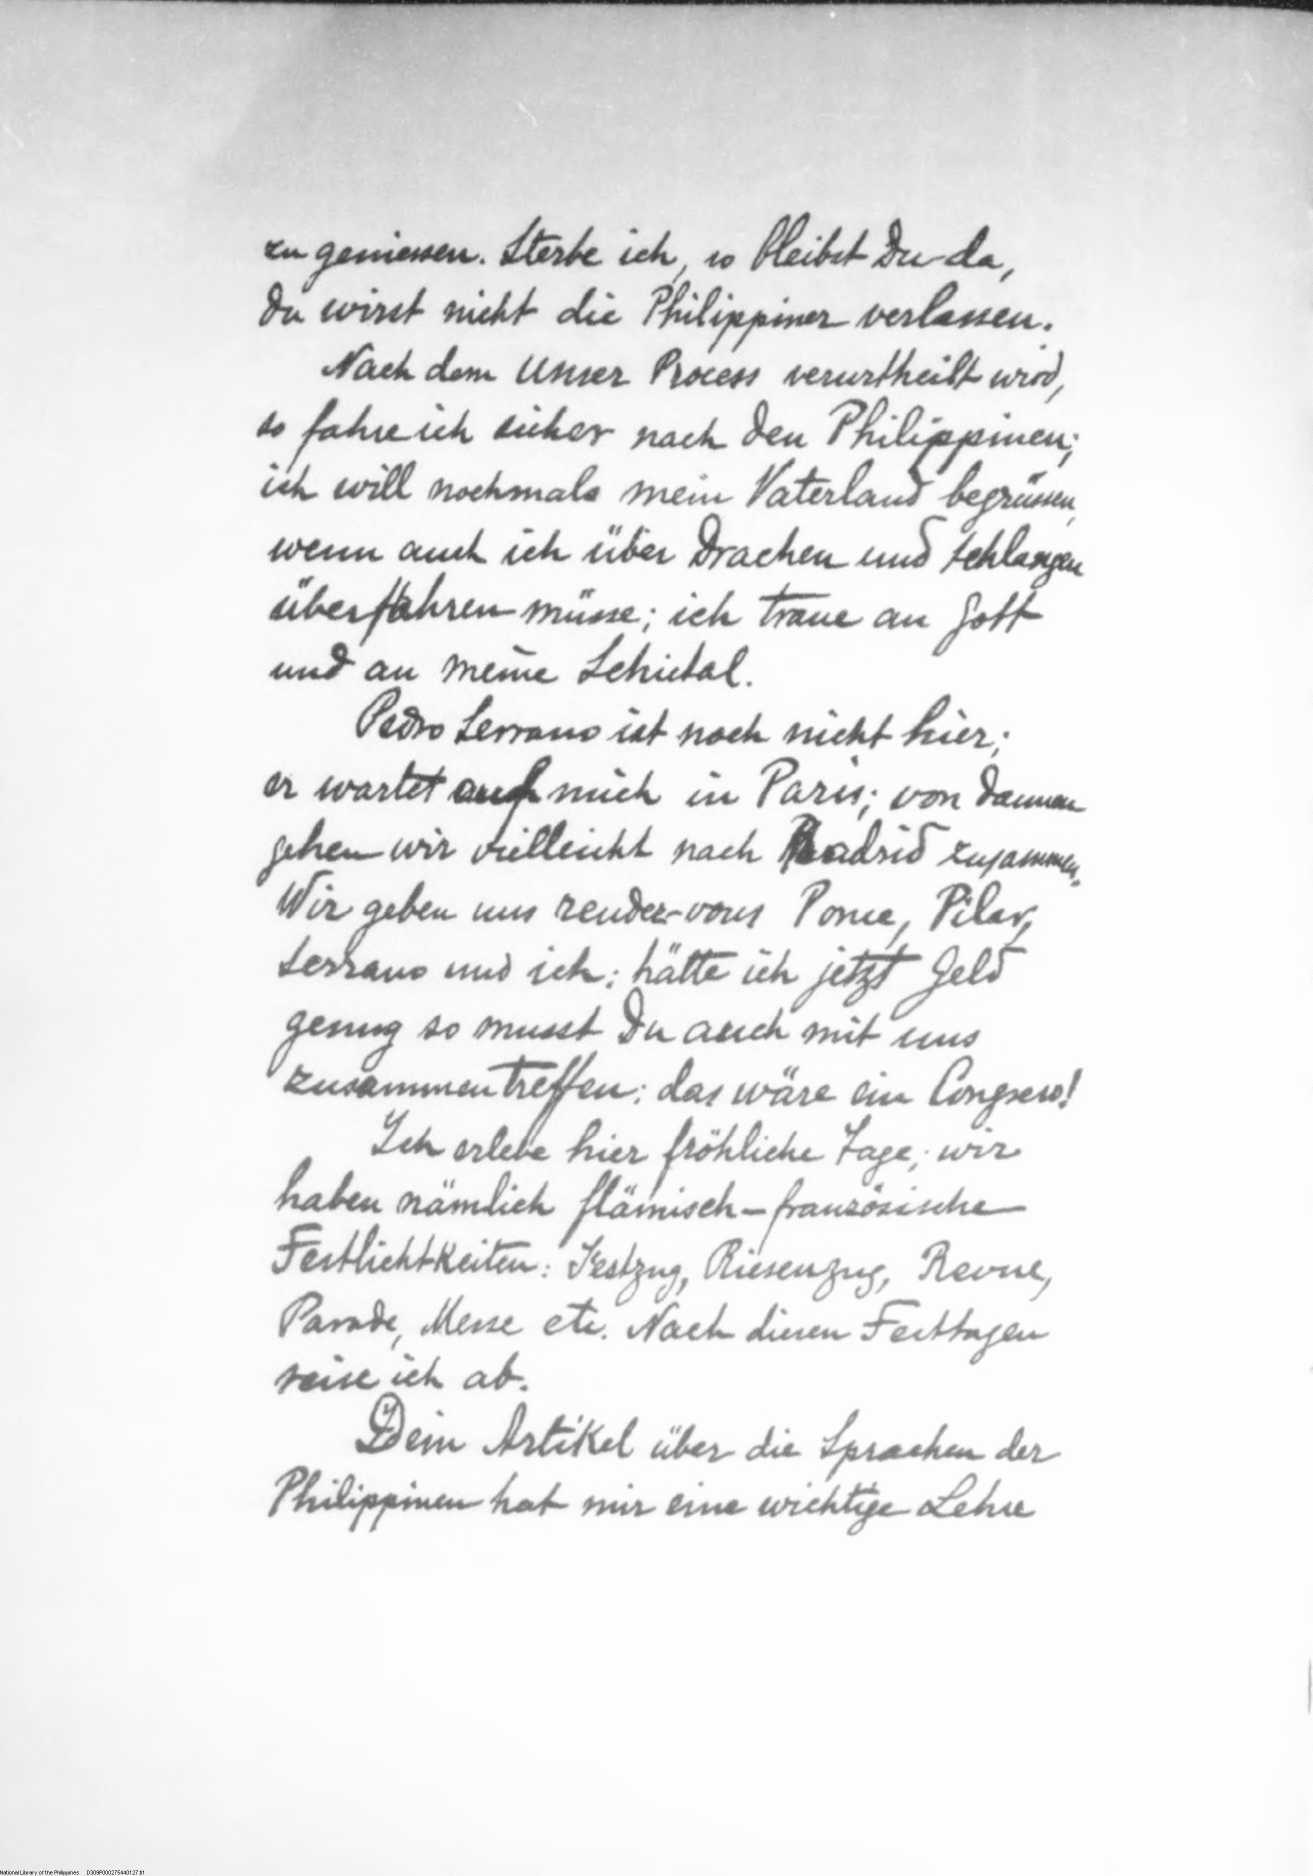 zu geniessen. Sterbe ich, so bleibst Du da,
Du wirst nicht die Philippiner verlassen.
Nach dem unser Process verurtheilt wird,
so fahre ich sicher nach den Philippinen;
ich will nochmals mein Vaterland begrüssen,
wenn auch ich über Drachen und Schlangen
überfahren müsse; ich traue an Gott
und an meine Schicksal.
Pedro Serrano ist noch nicht hier;
er wartet auf mich in Paris; von dannen
gehen wir vielleicht nach Madrid zusammen.
Wir geben uns rendez-vous Ponce, Pilar,
Serrano und ich; hätte ich jetzt Geld
genug so musst Du auch mit uns
zusammentreffen: das wäre ein Congress!
Ich erlebe hier fröhliche Tage; wir
haben nämlich flämisch-französische
Festlichtkeiten: Festzug, Riesenzug, Revue,
Parade, Messe etc. Nach diesen Festtagen
reise ich ab.
Dein Artikel über die Sprachen der
Philippinen hat mir eine wichtige Lehre
National Library of the Philippines D309P000275440127.tif